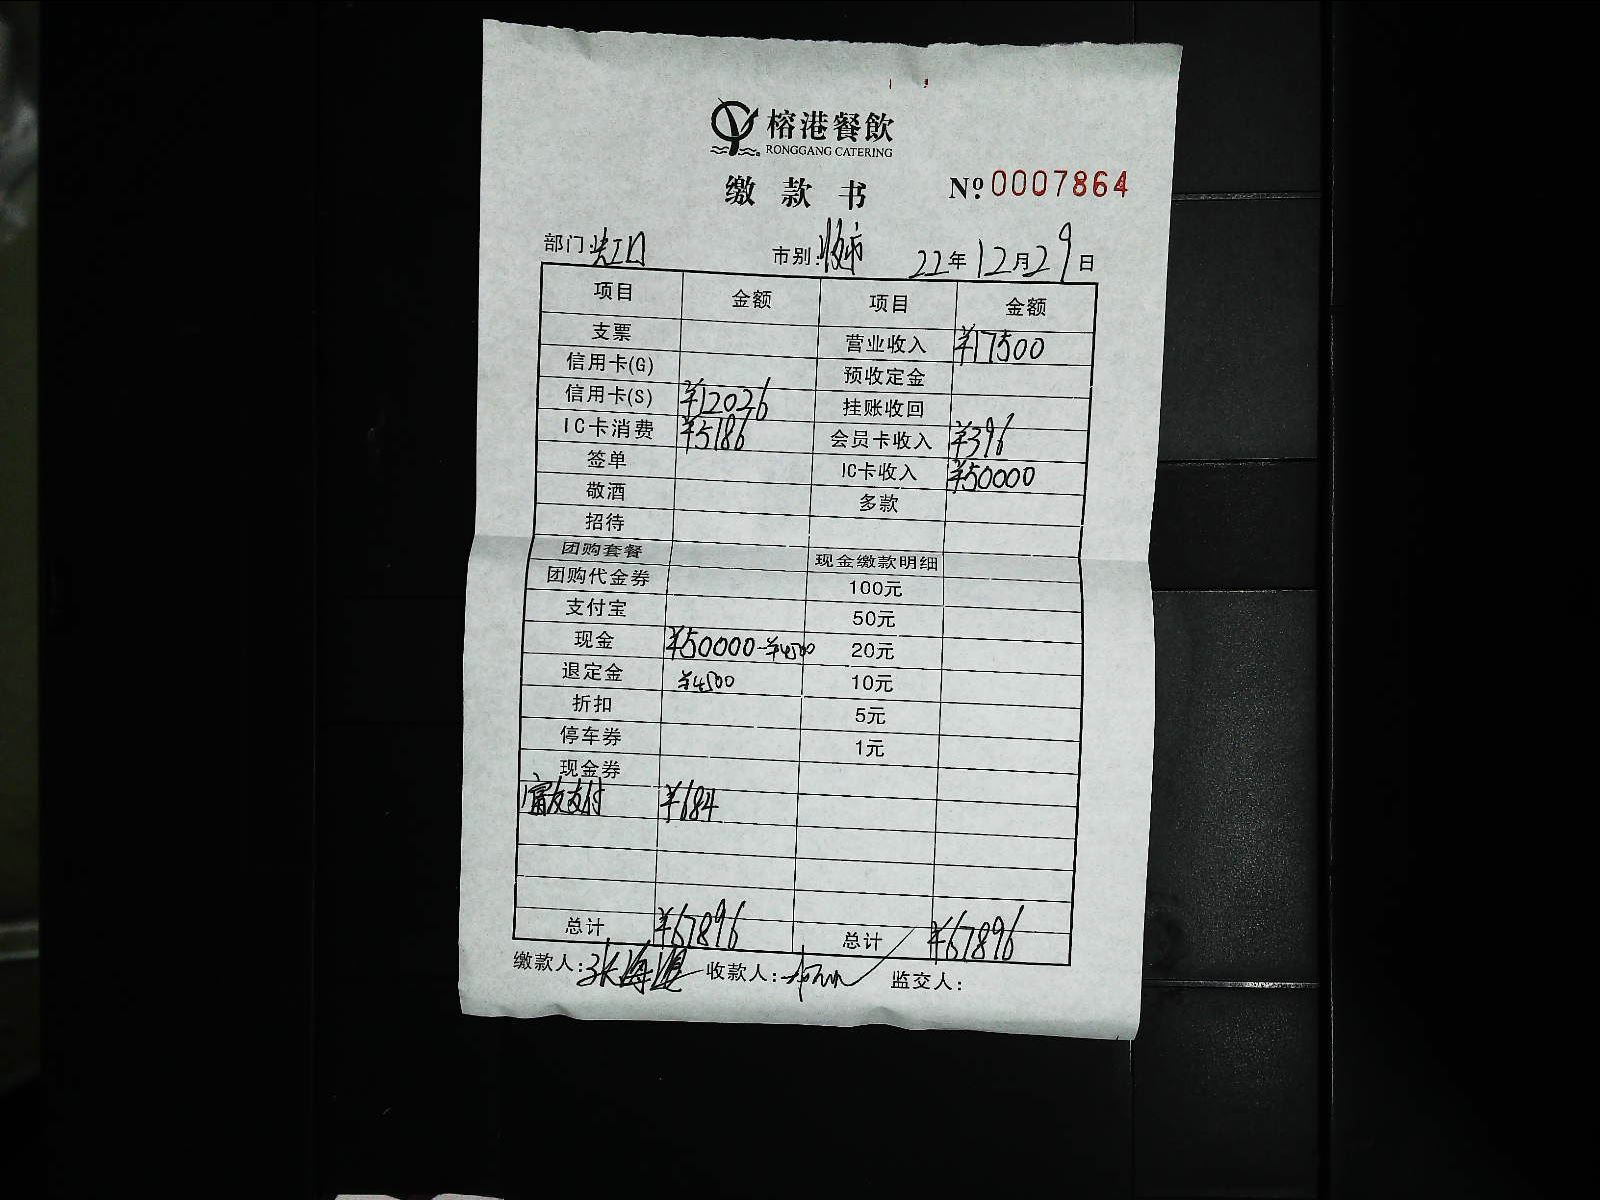 榕港餐飲
RONGGANG CATERING
缴款书 Nº 0007864
部门: 市别: 22年12月29日
项目 金额 项目 金额
支票 营业收入 ¥17500
信用卡(G) 预收定金
信用卡(S) ¥12026 挂账收回
IC卡消费 ¥5186 会员卡收入 ¥396
签单 IC卡收入 ¥50000
敬酒 多款
招待
团购套餐 现金缴款明细
团购代金券 100元
支付宝 50元
现金 ¥50000-¥4500 20元
退定金 ¥4500 10元
折扣 5元
停车券 1元
现金券
富友支付 ¥684
总计 ¥67896 总计 ¥67896
缴款人: 收款人: 监交人: